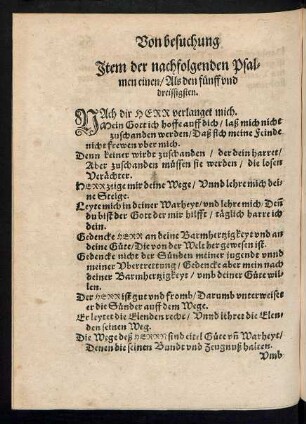 Von besuchung
Item der nachfolgenden Psal-
men einen/ Als den fünff vnd
dreissigsten.
NAch dir HERR verlanget mich.
Mein Gott ich hoffe auff dich/ laß mich nicht
zuschanden werden/ Daß sich meine Feinde
nicht frewen vber mich.
Denn keiner wirdt zuschanden / der dein harret/
Aber zuschanden müssen sie werden / die losen
Verächter.
HERR zeige mir deine Wege/ Vnnd lehre mich dei-
ne Steige.
Leyte mich in deiner Warheyt/ vnd lehre mich. Deñ
du bist der Gott der mir hilfft / täglich harre ich
dein.
Gedencke HERR an deine Barmhertzigkeyt vnd an
deine Güte/ Die von der Welt her gewesen ist.
Gedencke nicht der Sünden meiner jugendt vnnd
meiner Vbertrettung/ Gedencke aber mein nach
deiner Barmhertzigkeyt / vmb deiner Güte wil-
len.
Der HERR ist gut vnd fromb/ Darumb vnterweiset
er die Sünder auff dem Wege.
Er leytet die Elenden recht/ Vnnd lehret die Elen-
den seinen Weg.
Die Wege deß HERRN sind eitel Güte vñ Warheyt/
Denen die seinen Bundt vnd Zeugnuß halten.
Vmb